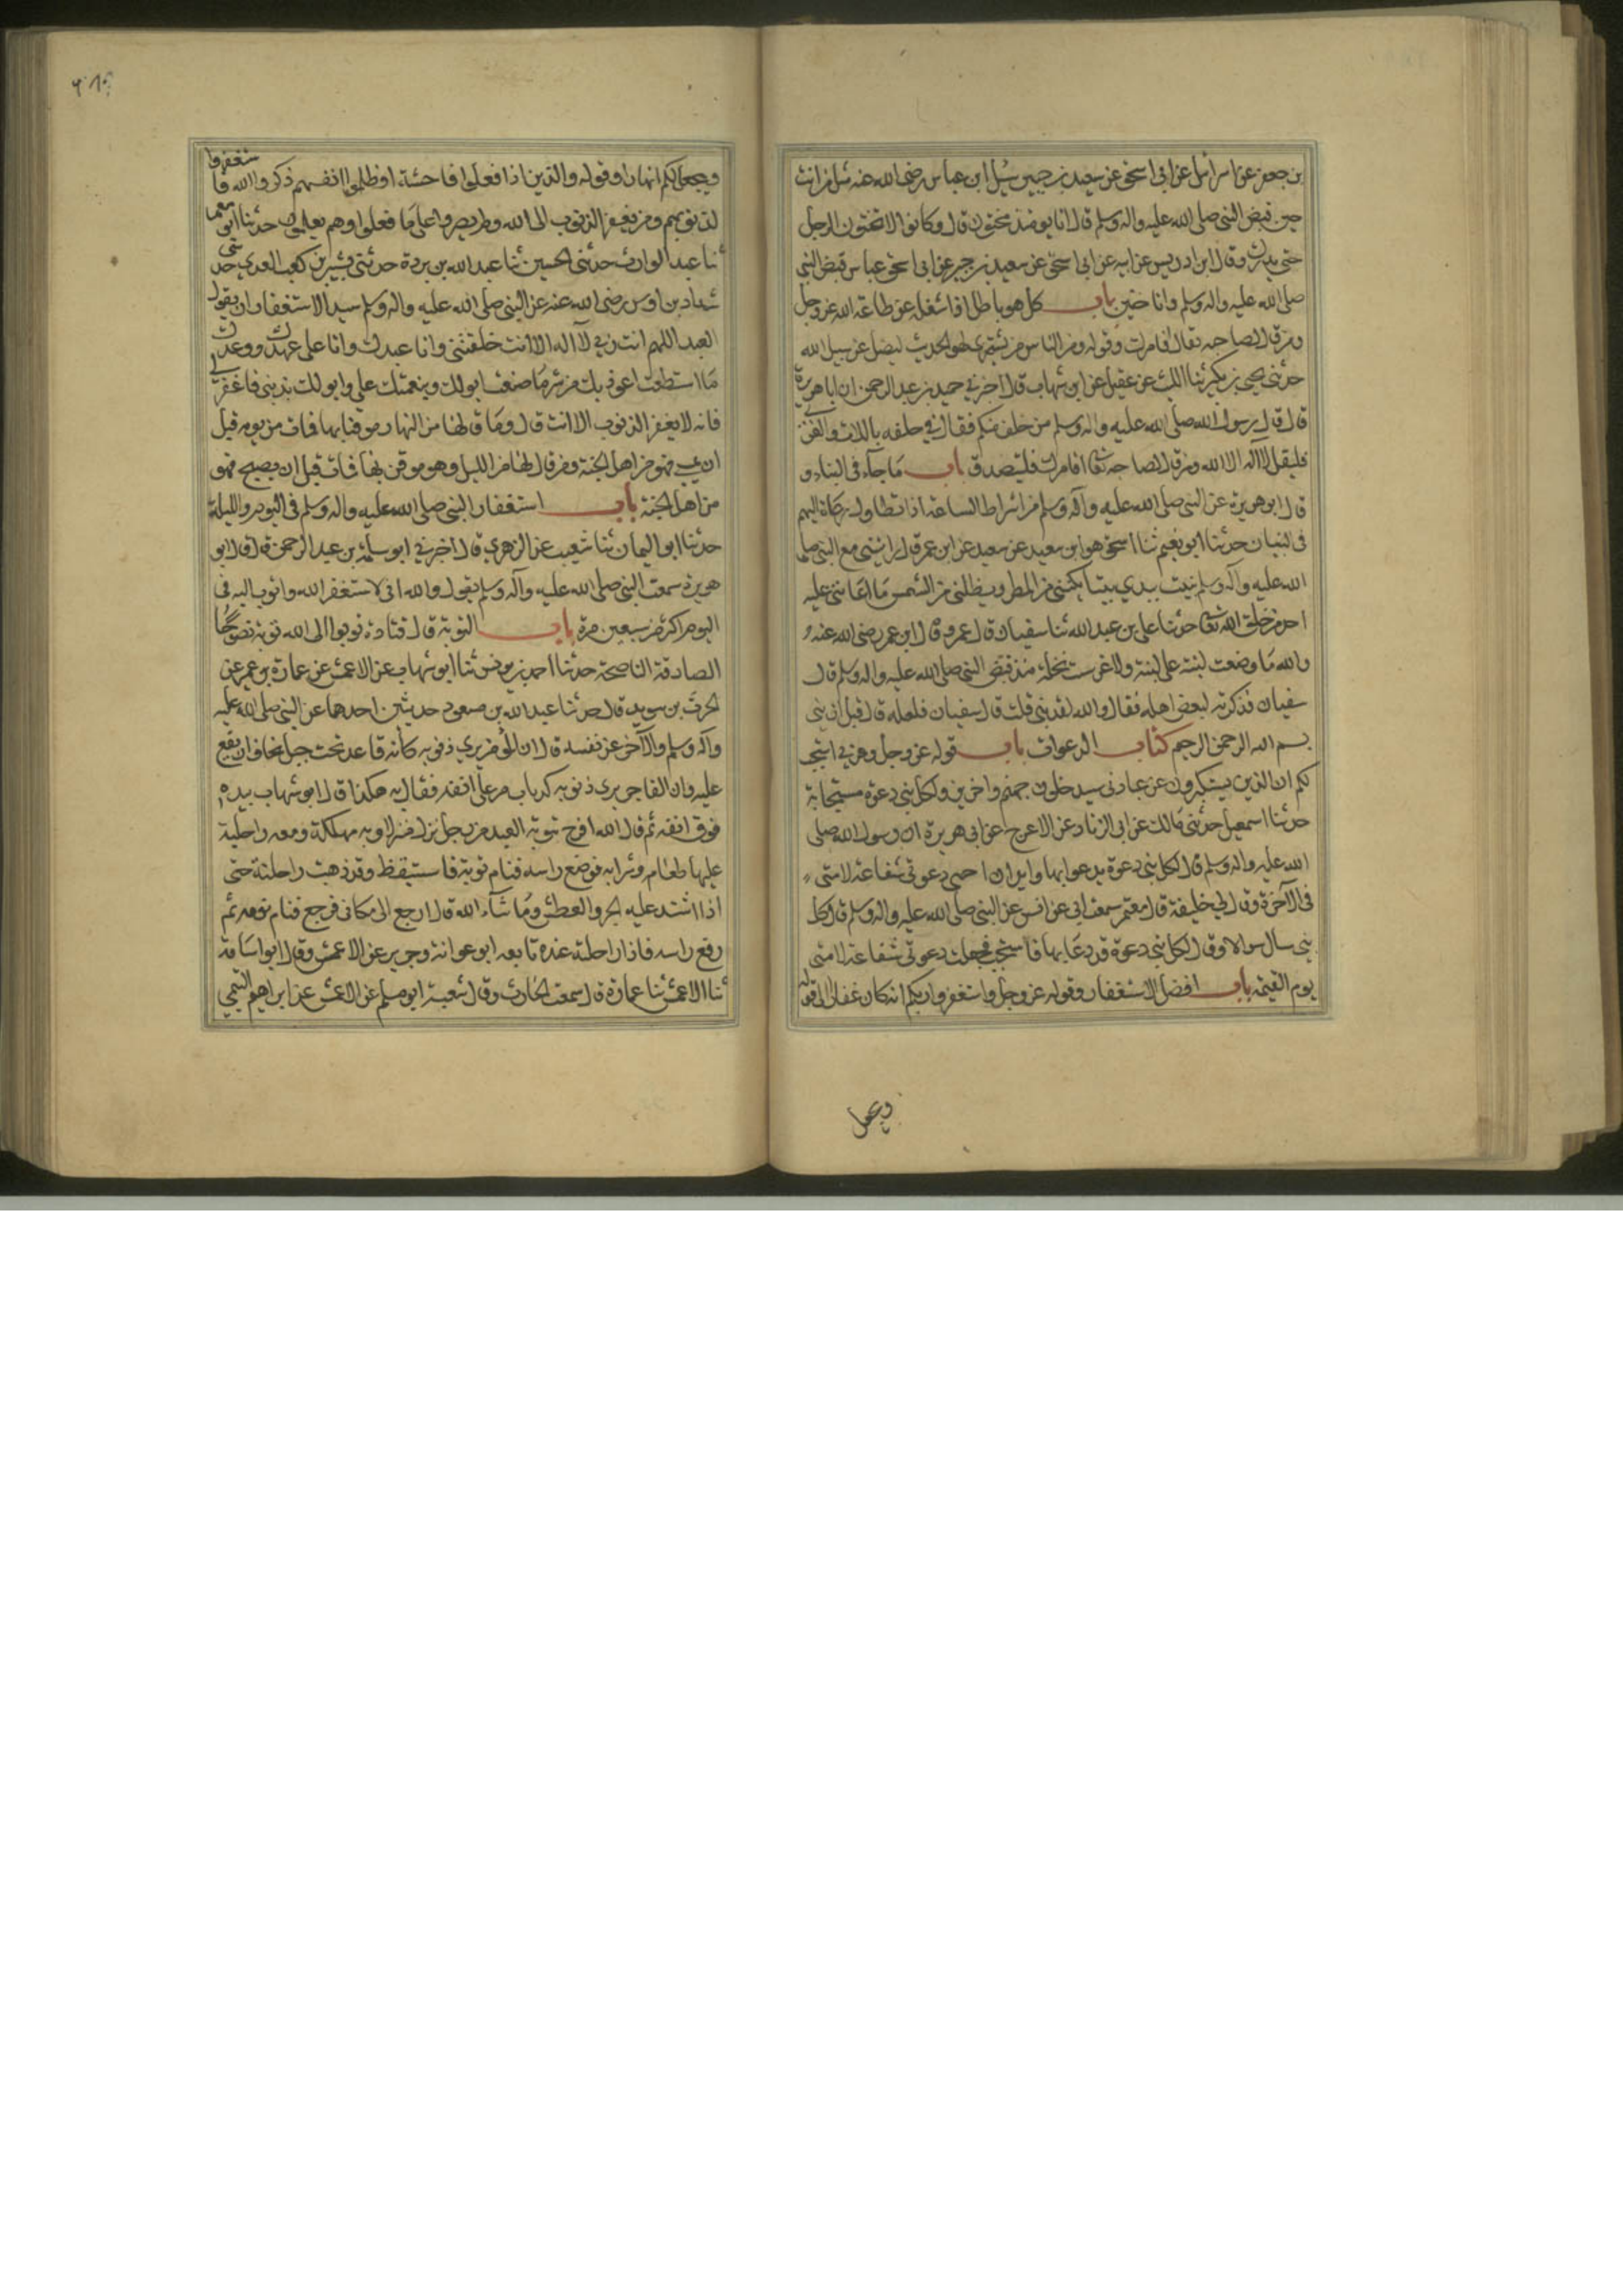 بن جعفر عن اسرائيل عن ابى اسحق عن سعيد بن جبير سئل ابن عباس رضى الله عنه مثل من انت
حين قبض النبى صلى الله عليه واله وسلم قال انا يومئذ مختون قال وكانوا لا يختنون الرجل
حتى يدرك وقال ابن ادريس عن ابيه عن ابى اسحق عن سعيد بن جبير عن ابن عباس قبض النبى
صلى الله عليه واله وسلم وانا ختين باب كل لهو باطل اذا شغله عن طاعة الله عز وجل
ومن قال لصاحبه تعال اقامرك وقوله ومن الناس من يشترى لهو الحديث ليضل عن سبيل الله
حدثنى يحيى بن بكير ثنا الليث عن عقيل عن ابن شهاب قال اخبرني حميد بن عبد الرحمن ان ابا هريرة
قال قال رسول الله صلى الله عليه واله وسلم من حلف منكم فقال في حلفه باللات والعزى
فليقل لا اله الا الله ومن قال لصاحبه تعال اقامرك فليتصدق باب ما جآء فى البناء و
قال ابو هريرة عن النبى صلى الله عليه وآله وسلم من اشراط الساعة اذا تطاول رعاة البهم
فى البنيان حدثنا ابو نعيم ثنا اسحق هو ابن سعيد عن سعيد عن ابن عمر قال رايتنى مع النبى صلى
الله عليه وآله وسلم بنيت بيدي بيتا يكننى من المطر ويظلنى من الشمس ما اعاننى عليه
احد من خلق الله تعا حدثنا على بن عبد الله ثنا سفيان قال عمرو قال ابن عمر رضى الله عنه و
والله ما وضعت لبنة على لبنة ولا غرست نخلة منذ قبض النبى صلى الله عليه واله وسلم قال
سفيان فذكرته لبعض اهله فقال والله لقد بنى قلت قال سفيان فلعله قال قبل ان يبنى
بسم الله الرحمن الرحيم كتاب الدعوات باب قوله عز وجل ادعونى استجب
لكم ان الذين يستكبرون عن عبادتى سيدخلون جهنم داخرين ولكل نبى دعوة مستجابة
حدثنا اسمعيل حدثنى مالك عن ابى الزناد عن الاعرج عن ابى هريرة ان رسول الله صلى
الله عليه واله وسلم قال لكل نبى دعوة يدعو بها واريد ان اختبى دعوتى شفاعة لامتى
فى الآخرة وقال لي خليفة قال معتمر سمعت ابى عن انس عن النبى صلى الله عليه واله وسلم قال كل
نبى سال سوالا وقال لكل نبى دعوة قد دعا بها فاستجيب فجعلت دعوتى شفاعة لامتى
يوم القيمة باب افضل الاستغفار وقوله عز وجل واستغفروا ربكم انه كان غفارا الى قوله
ويجعل
ويجعل لكم انهارا وقوله والذين اذا فعلوا فاحشة او ظلموا انفسهم ذكروا الله فاستغفروا
لذنوبهم ومن يغفر الذنوب الا الله ولم يصروا على ما فعلوا وهم يعلمون حدثنا ابو معمر
ثنا عبد الوارث حدثنى الحسين ثنا عبد الله بن بردة حدثنى بشير بن كعب العدوي حدثنى
شداد بن اوس رضى الله عنه عن النبى صلى الله عليه واله وسلم سيد الاستغفار ان يقول
العبد اللهم انت ربي لا اله الا انت خلقتنى وانا عبدك وانا على عهدك ووعدك
ما استطعت اعوذ بك من شر ما صنعت ابو لك بنعمتك علي وابو لك بذنبى فاغفر لي
فانه لا يغفر الذنوب الا انت قال وما قالها من النهار موقنا بها فمات من يومه قبل
ان يمسى فهو من اهل الجنة ومن قالها من الليل وهو موقن بها فمات قبل ان يصبح فهو
من اهل الجنة باب استغفار النبى صلى الله عليه واله وسلم فى اليوم والليلة
حدثنا ابو اليمان ثنا شعيب عن الزهري قال اخبرني ابو سلمة بن عبد الرحمن قال قال ابو
هريرة سمعت النبى صلى الله عليه وآله وسلم يقول والله انى لاستغفر الله واتوب اليه فى
اليوم اكثر من سبعين مرة باب التوبة قال قتادة توبوا الى الله توبة نصوحا
الصادقة الناصحة حدثنا احمد بن يونس ثنا ابو شهاب عن الاعمش عن عمارة بن عمير عن
الحرث بن سويد قال حدثنا عبد الله بن مسعود حديثين احدهما عن النبى صلى الله عليه
وآله وسلم والآخر عن نفسه قال ان المؤمن يري ذنوبه كأنه قاعد تحت جبل يخاف ان يقع
عليه وان الفاجر يرى ذنوبه كذباب مر على انفه فقال به هكذا قال ابو شهاب بيده
فوق انفه ثم قال الله افرح بتوبة العبد من رجل نزل منزلا وبه مهلكة ومعه راحلته
عليها طعامه وشرابه فوضع راسه فنام نومة فاستيقظ وقد ذهبت راحلته حتى
اذا اشتد عليه الحر والعطش وما شآء الله قال ارجع الى مكانى فرجع فنام نومه ثم
رفع راسه فاذا راحلته عنده تابعه ابو عوانة وجرير عن الاعمش وقال ابو اسامة
ثنا الاعمش ثنا عمارة قال سمعت الحارث وقال شعبة ابو مسلم عن الاعمش عن ابراهيم التيمي